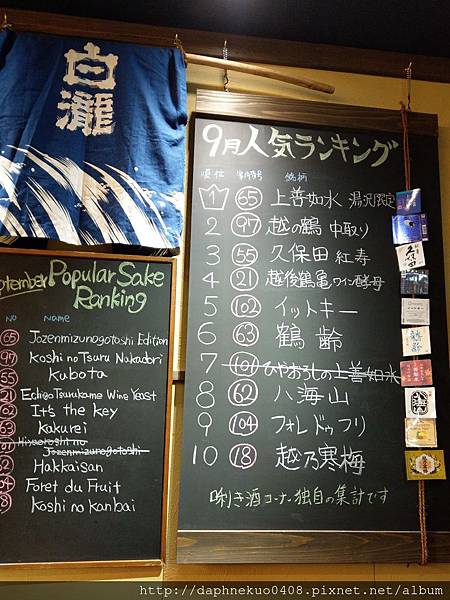 白瀧
9月人気ランキング
順位 番号 銘柄
1 65 上善如水 湯沢限定
2 97 越の鶴 中取り
3 55 久保田 紅寿
4 21 越後鶴亀 ワイン酵母
5 102 イットキー
6 63 鶴齢
7 101 ひやおろしの上善如水
8 62 八海山
9 104 フォレ ドゥ フリ
10 18 越乃寒梅
唎き酒コーナー独自の集計です
September Popular Sake
Ranking
No Name
65 Jozenmizunogotoshi Edition
97 Koshi no Tsuru Nakadori
55 Kubota
21 Echigo Tsurukame Wine Yeast
102 It's the key
63 kakurei
Hiyaoroshi no
Jozenmizunogotoshi
62 Hakkaisan
104 Foret du Fruit
18 Koshi no kanbai
http://daphnekuo0408.pixnet.net/album